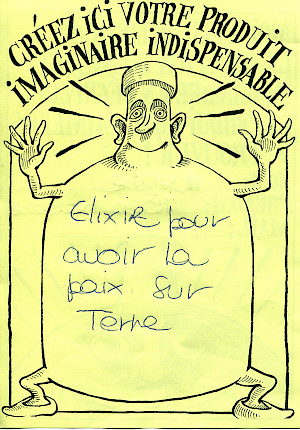 CRÉEZ ICI VOTRE PRODUIT
IMAGINAIRE INDISPENSABLE
Elixir pour
avoir la
paix sur
Terre